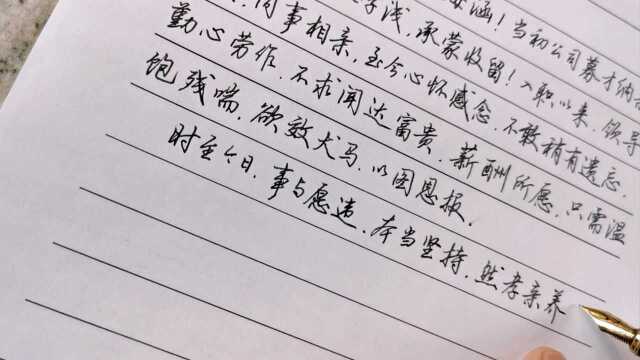 涵！当初公司募才纳
浅，承蒙收留！入职以来，领导
同事相亲，至今心怀感念，不敢稍有遗忘，
勤心劳作，不求闻达富贵，薪酬所愿，只需温
饱残喘，欲效犬马，以图恩报。
时至今日，事与愿违，本当坚持，然孝亲养